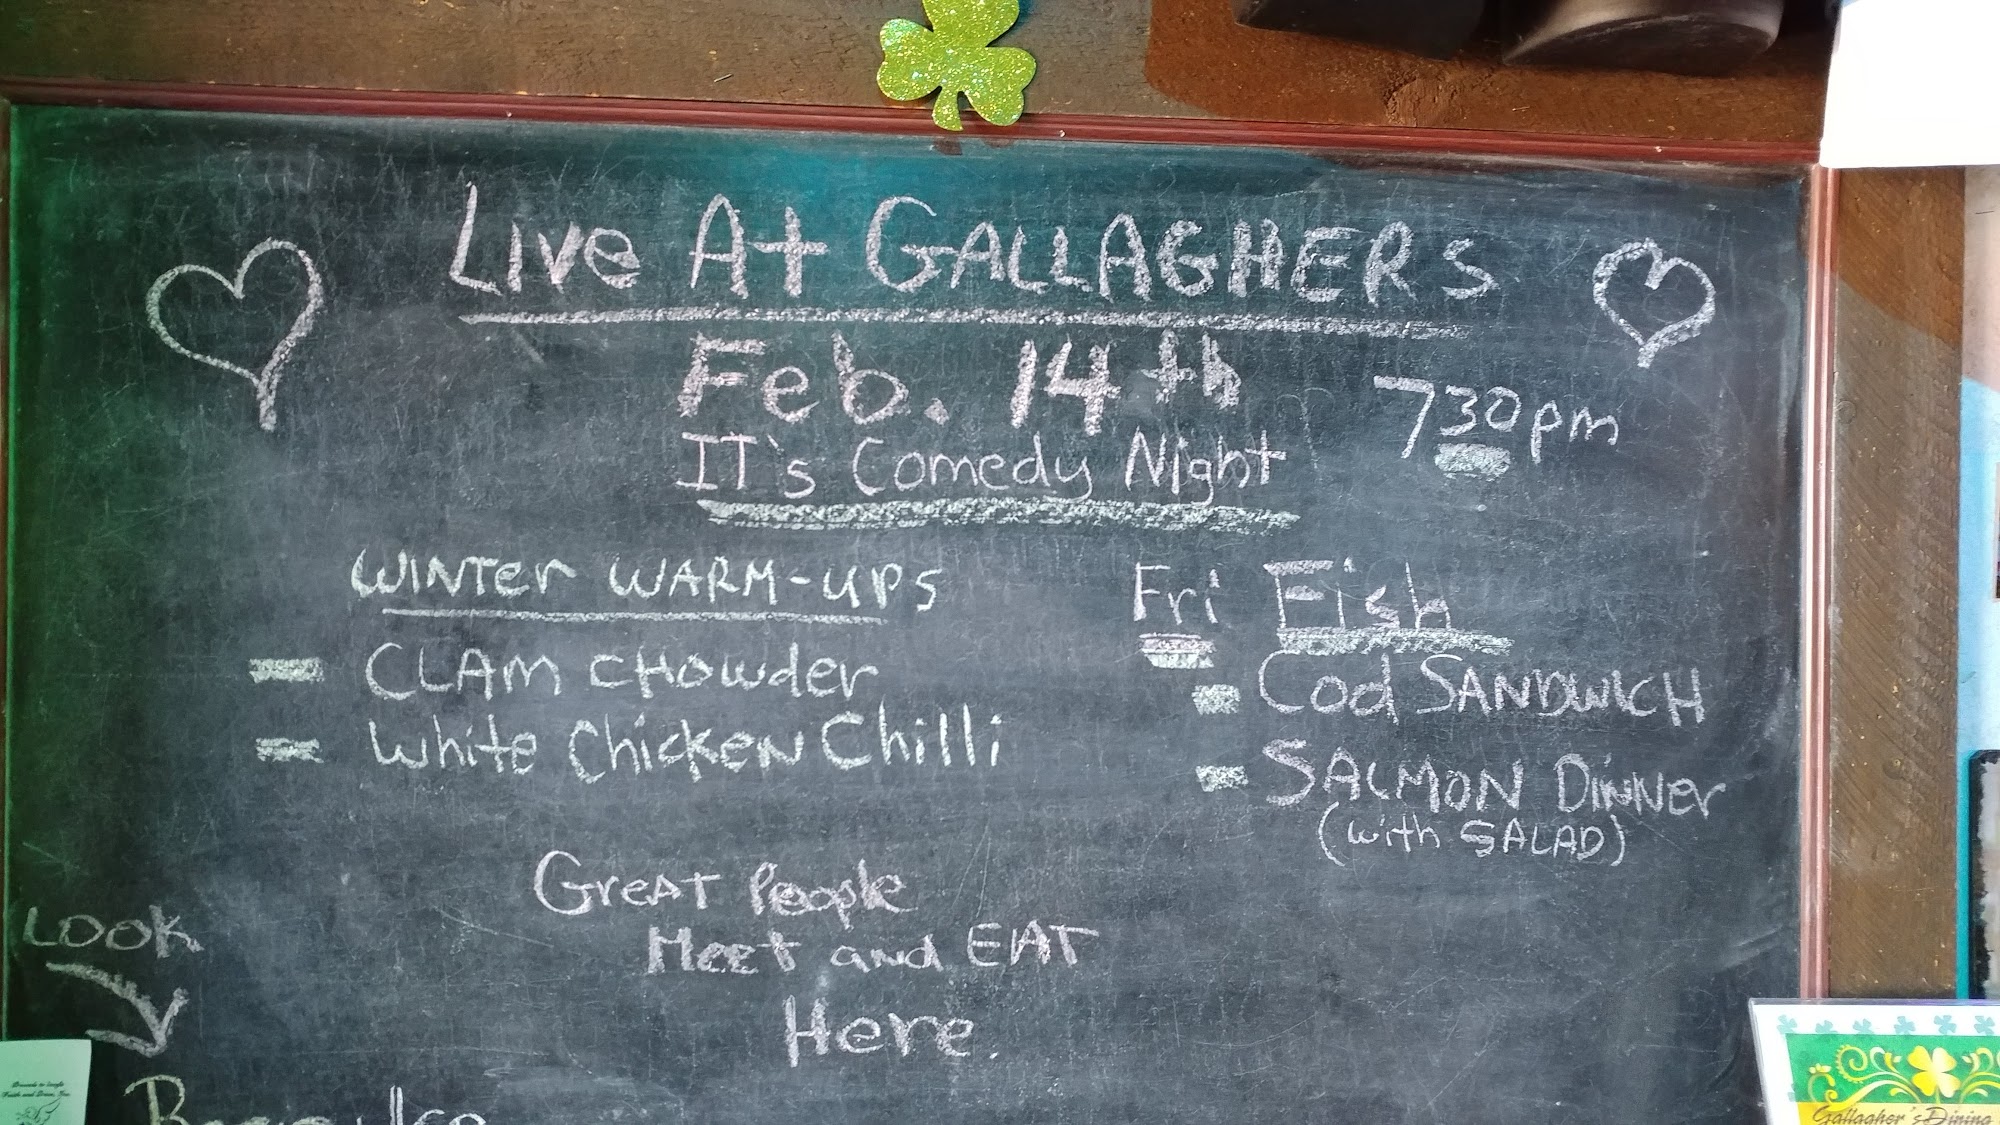 Live At GALLAGHERS
Feb. 14th
730pm
IT's Comedy Night
WINTer WARM-UPS
- CLAM CHOWder
- White ChicKEN Chilli
Fri Fish
- Cod SANDWICH
- SALMON DiNNer
(with SALAD)
GreAT People
Meet and EAT
Here.
LOOK
Gallagher's Dining